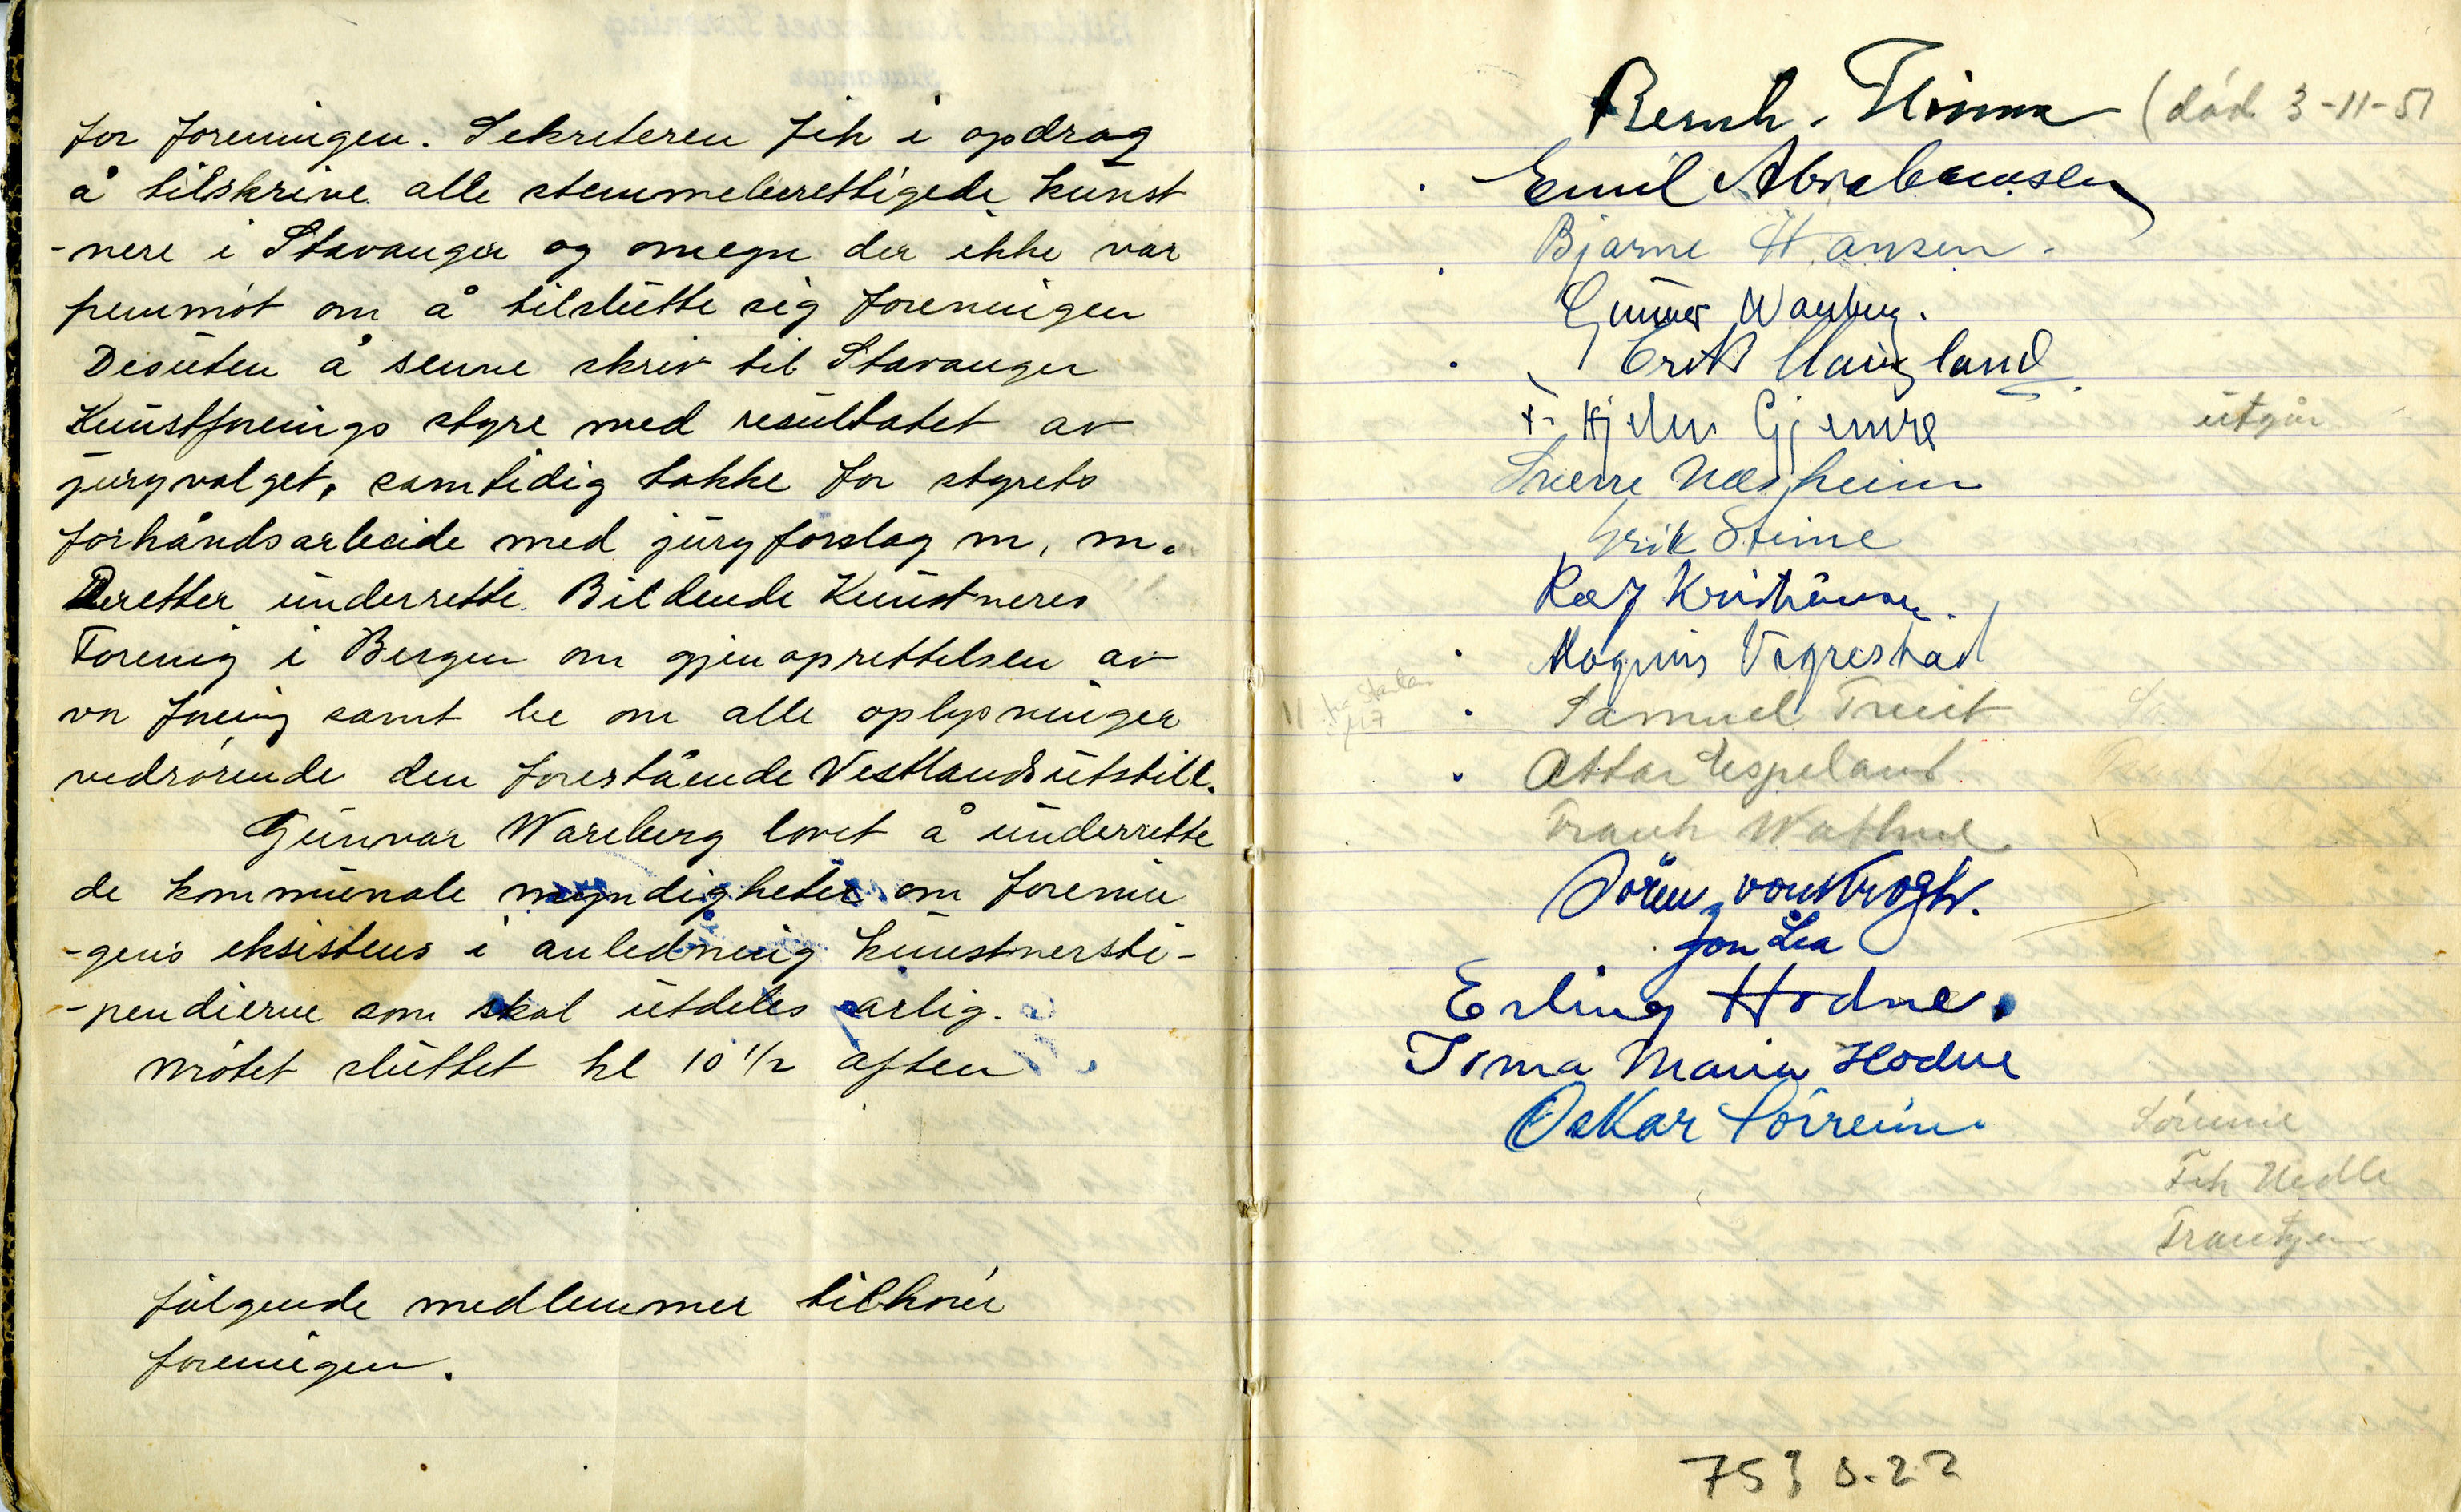 for foreningen. Sekreteren fik i opdrag
å tilskrive alle stemmeberettigede kunst
-nere i Stavanger og omegn der ikke var
fremmöt om å tilslutte sig foreningen
Desuten å senne skriv til Stavanger
Kunstforenings styre med resultatet av
juryvalget, samtidig takke for styrets
forhåndsarbeide med juryforslag m. m.
Deretter underrette Bildende Kunstneres
Forenig i Bergen om gjenoprettelsen av
vor forenig samt be om alle oplysninger
vedrörende den forestående Vestlandsutstill.
Gunvar Wareberg lovet å underrette
de kommunale myndigheter om forenin
-gens eksistens i anledning kunstnersti-
-pendierne som skal utdeles årlig.
Mötet sluttet kl 10 1/2 aften
fölgende medlemmer tilhörer
foreningen.
Bernh. Hinna (död 3-11-51
Emil Abrahamsen
Bjarne Hansen.
Gunvar Wareberg.
Erik Haugland
Hjelm Gjemre utgår
Sverre Nesheim
Erik Steine
Ralf Kristiansen.
Magnus Vigrestad
Samuel Truit
Ottar Espeland
Frank Wathne
Sören von Krogh.
Jon Lea
Erling Hodne.
Irma Maria Hodne
Oskar Sörreime
Tranetjen
753 S. 22